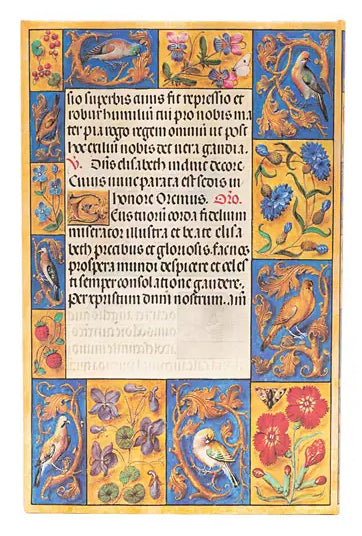 sio superbis cuius fit repressio et
robur humiliū tui pro nobis ma
ter pia rogo regem omniū ut post
hoc exiliū nobis det vera gaudia.
V. Dñs elisabeth induit decore
Cuius nunc parata est sedis in
honore Oremus. Orō.
Tuorū corda fidelium
miserator illustra et beate elisa
beth precibus et gloriosis. fac nos
prospera mundi despicere et celes
ti semper consolatione gaudere.
per xpristum dnm nostrum. am